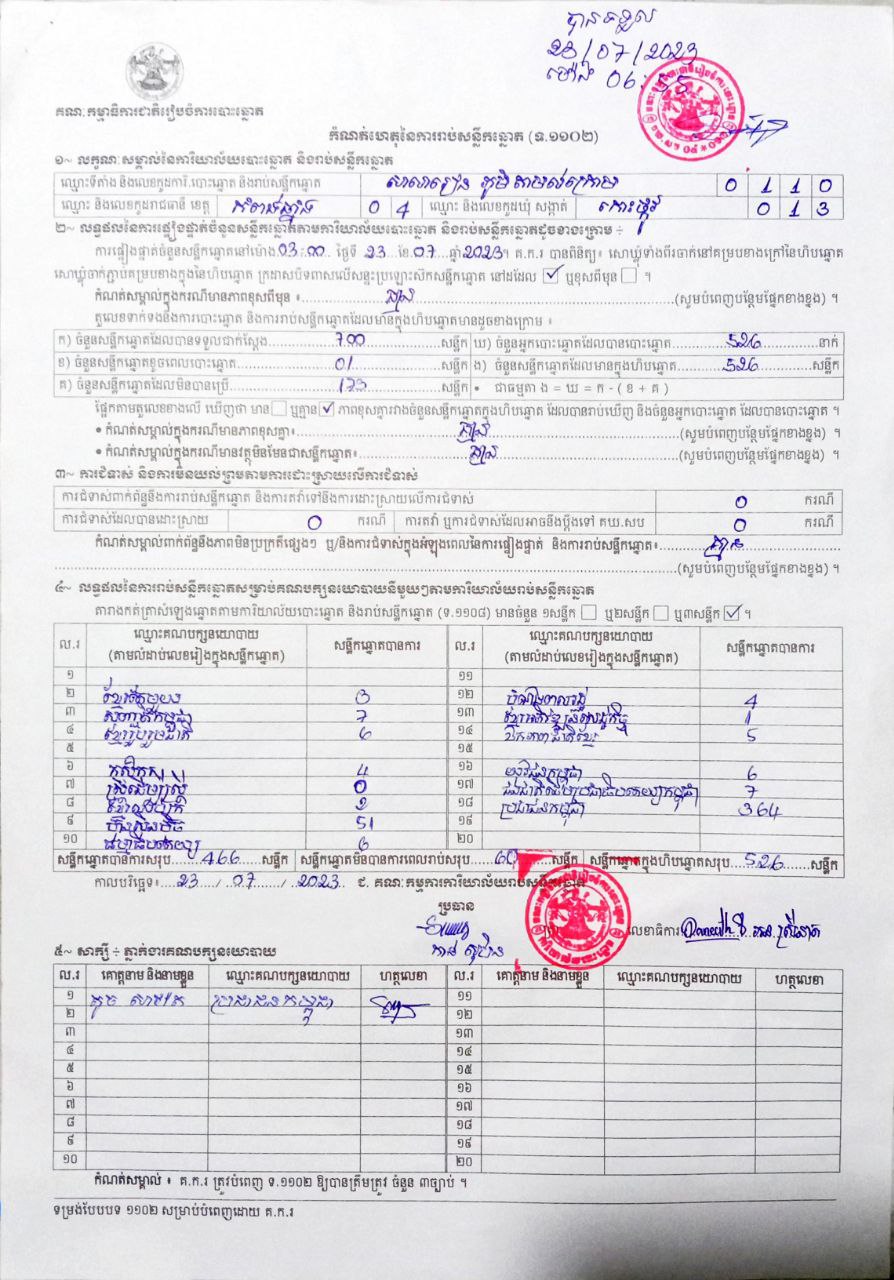 បានទទួល
23/07/2023
ម៉ោង 06:
គណៈកម្មាធិការជាតិរៀបចំការបោះឆ្នោត
កំណត់ហេតុនៃការរាប់សន្លឹកឆ្នោត (ទ.១១០២)
១~ លក្ខណៈសម្គាល់នៃការិយាល័យបោះឆ្នោត និងរាប់សន្លឹកឆ្នោត
ឈ្មោះទីតាំង និងលេខកូដការិ.បោះឆ្នោត និងរាប់សន្លឹកឆ្នោត សាលារៀន ភូមិ 0 1 1 0
ឈ្មោះ និងលេខកូដរាជធានី ខេត្ត កំពង់ឆ្នាំង 0 4 ឈ្មោះ និងលេខកូដឃុំ សង្កាត់ 0 1 3
២~ លទ្ធផលនៃការផ្ទៀងផ្ទាត់ចំនួនសន្លឹកឆ្នោតតាមការិយាល័យបោះឆ្នោត និងរាប់សន្លឹកឆ្នោតដូចខាងក្រោម ÷
ការផ្ទៀងផ្ទាត់ចំនួនសន្លឹកឆ្នោតនៅម៉ោង 03:00 ថ្ងៃទី 23 ខែ 07 ឆ្នាំ 2023។ គ.ក.រ បានពិនិត្យ៖ សោឃ្លុំទាំងពីរចាក់នៅគម្របខាងក្រៅនៃហិបឆ្នោត
សោឃ្លុំចាក់ភ្ជាប់គម្របខាងក្នុងនៃហិបឆ្នោត ក្រដាសបិទពាសលើសន្ទះប្រឡោះស៊កសន្លឹកឆ្នោត នៅដដែល ☑ ឬខុសពីមុន ☐ ។
កំណត់សម្គាល់ក្នុងករណីមានភាពខុសពីមុន ៖ គ្មាន (សូមបំពេញបន្ថែមផ្នែកខាងខ្នង) ។
តួលេខទាក់ទងនឹងការបោះឆ្នោត និងការរាប់សន្លឹកឆ្នោតដែលមានក្នុងហិបឆ្នោតមានដូចខាងក្រោម ៖
ក) ចំនួនសន្លឹកឆ្នោតដែលបានទទួលជាក់ស្តែង 700 សន្លឹក ឃ) ចំនួនអ្នកបោះឆ្នោតដែលបានបោះឆ្នោត 526 នាក់
ខ) ចំនួនសន្លឹកឆ្នោតខូចពេលបោះឆ្នោត 01 សន្លឹក ង) ចំនួនសន្លឹកឆ្នោតដែលមានក្នុងហិបឆ្នោត 526 សន្លឹក
គ) ចំនួនសន្លឹកឆ្នោតដែលមិនបានប្រើ 173 សន្លឹក • ជាធម្មតា ង = ឃ = ក - ( ខ + គ )
ផ្អែកតាមតួលេខខាងលើ ឃើញថា មាន ☐ ឬគ្មាន ☑ ភាពខុសគ្នារវាងចំនួនសន្លឹកឆ្នោតក្នុងហិបឆ្នោត ដែលបានរាប់ឃើញ និងចំនួនអ្នកបោះឆ្នោត ដែលបានបោះឆ្នោត ។
• កំណត់សម្គាល់ក្នុងករណីមានភាពខុសគ្នា៖ គ្មាន (សូមបំពេញបន្ថែមផ្នែកខាងខ្នង) ។
• កំណត់សម្គាល់ក្នុងករណីមានវត្ថុមិនមែនជាសន្លឹកឆ្នោត៖ គ្មាន (សូមបំពេញបន្ថែមផ្នែកខាងខ្នង) ។
៣~ ការជំទាស់ និងការមិនយល់ព្រមតាមការដោះស្រាយលើការជំទាស់
ការជំទាស់ពាក់ព័ន្ធនឹងការរាប់សន្លឹកឆ្នោត និងការតវ៉ាទៅនឹងការដោះស្រាយលើការជំទាស់ 0 ករណី
ការជំទាស់ដែលបានដោះស្រាយ 0 ករណី ការតវ៉ា ឬការជំទាស់ដែលអាចនឹងប្តឹងទៅ គឃ.សប 0 ករណី
កំណត់សម្គាល់ពាក់ព័ន្ធនឹងភាពមិនប្រក្រតីផ្សេងៗ ឬ/និងការជំទាស់ក្នុងអំឡុងពេលនៃការផ្ទៀងផ្ទាត់ និងការរាប់សន្លឹកឆ្នោត៖ គ្មាន
(សូមបំពេញបន្ថែមផ្នែកខាងខ្នង) ។
៤~ លទ្ធផលនៃការរាប់សន្លឹកឆ្នោតសម្រាប់គណបក្សនយោបាយនីមួយៗតាមការិយាល័យរាប់សន្លឹកឆ្នោត
តារាងកត់ត្រាសំឡេងឆ្នោតតាមការិយាល័យបោះឆ្នោត និងរាប់សន្លឹកឆ្នោត (ទ.១១០៨) មានចំនួន ១សន្លឹក ☐ ឬ២សន្លឹក ☐ ឬ៣សន្លឹក ☑ ។
ល.រ ឈ្មោះគណបក្សនយោបាយ (តាមលំដាប់លេខរៀងក្នុងសន្លឹកឆ្នោត) សន្លឹកឆ្នោតបានការ ល.រ ឈ្មោះគណបក្សនយោបាយ (តាមលំដាប់លេខរៀងក្នុងសន្លឹកឆ្នោត) សន្លឹកឆ្នោតបានការ
១ ១១
២ ខ្មែរតែមួយ 3 ១២ 4
៣ 7 ១៣ 1
៤ ខ្មែររួបរួមជាតិ 6 ១៤ ឯកភាពជាតិខ្មែរ 5
៥ ១៥
៦ កសិករ 4 ១៦ យុវជនកម្ពុជា 6
៧ ស្ត្រីដើម្បីស្ត្រី 0 ១៧ 7
៨ 2 ១៨ ប្រជាជនកម្ពុជា 364
៩ ហ៊្វុនស៊ិនប៉ិច 51 ១៩
១០ ធម្មាធិបតេយ្យ 6 ២០
សន្លឹកឆ្នោតបានការសរុប 466 សន្លឹក សន្លឹកឆ្នោតមិនបានការពេលរាប់សរុប 60 សន្លឹក សន្លឹកឆ្នោតក្នុងហិបឆ្នោតសរុប 526 សន្លឹក
កាលបរិច្ឆេទ៖ 23 / 07 / 2023 ជ. គណៈកម្មការការិយាល័យរាប់សន្លឹកឆ្នោត
ប្រធាន
លេខាធិការ
៥~ សាក្សី ÷ ភ្នាក់ងារគណបក្សនយោបាយ
ល.រ គោត្តនាម និងនាមខ្លួន ឈ្មោះគណបក្សនយោបាយ ហត្ថលេខា ល.រ គោត្តនាម និងនាមខ្លួន ឈ្មោះគណបក្សនយោបាយ ហត្ថលេខា
១ ប្រជាជនកម្ពុជា ១១
២ ១២
៣ ១៣
៤ ១៤
៥ ១៥
៦ ១៦
៧ ១៧
៨ ១៨
៩ ១៩
១០ ២០
កំណត់សម្គាល់ ៖ គ.ក.រ ត្រូវបំពេញ ទ.១១០២ ឱ្យបានត្រឹមត្រូវ ចំនួន ៣ច្បាប់ ។
ទម្រង់បែបបទ ១១០២ សម្រាប់បំពេញដោយ គ.ក.រ